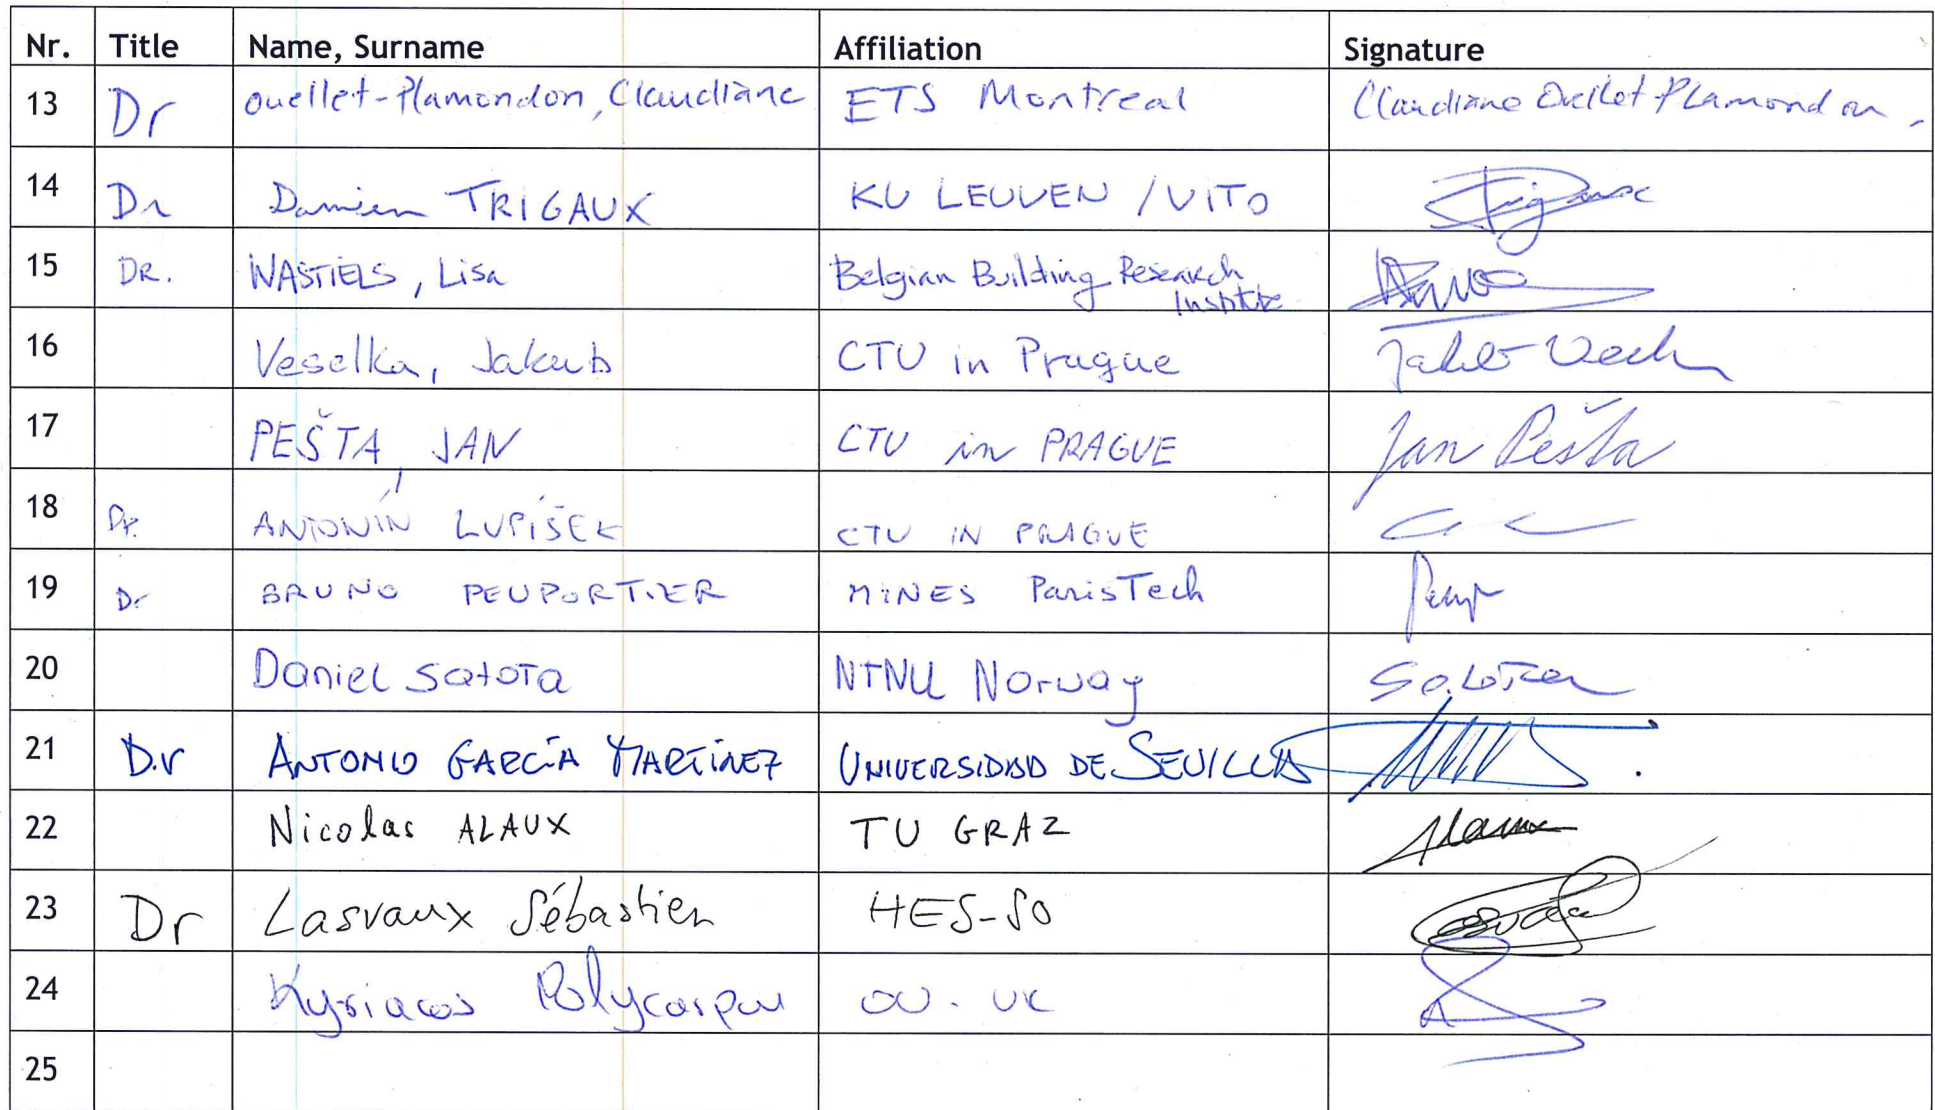 Nr. Title Name, Surname Affiliation Signature
13 Dr Ouellet-Plamondon, Claudiane ETS Montreal Claudiane Ouellet-Plamondon
14 Dr Damien TRIGAUX KU LEUVEN / VITO Trigaux
15 DR. WASTIELS, Lisa Belgian Building Research
Institute
16 Veselka, Jakub CTU in Prague
17 PEŠTA, JAN CTU in PRAGUE Jan Pešta
18 Dr. ANTONÍN LUPÍŠEK CTU IN PRAGUE
19 Dr BRUNO PEUPORTIER MINES ParisTech
20 Daniel Satola NTNU Norway Satola
21 Dr ANTONIO GARCÍA MARTÍNEZ UNIVERSIDAD DE SEVILLA
22 Nicolas ALAUX TU GRAZ Alaux
23 Dr Lasvaux Sébastien HES-SO
24 Kyriacos Polycarpou OU - UK
25